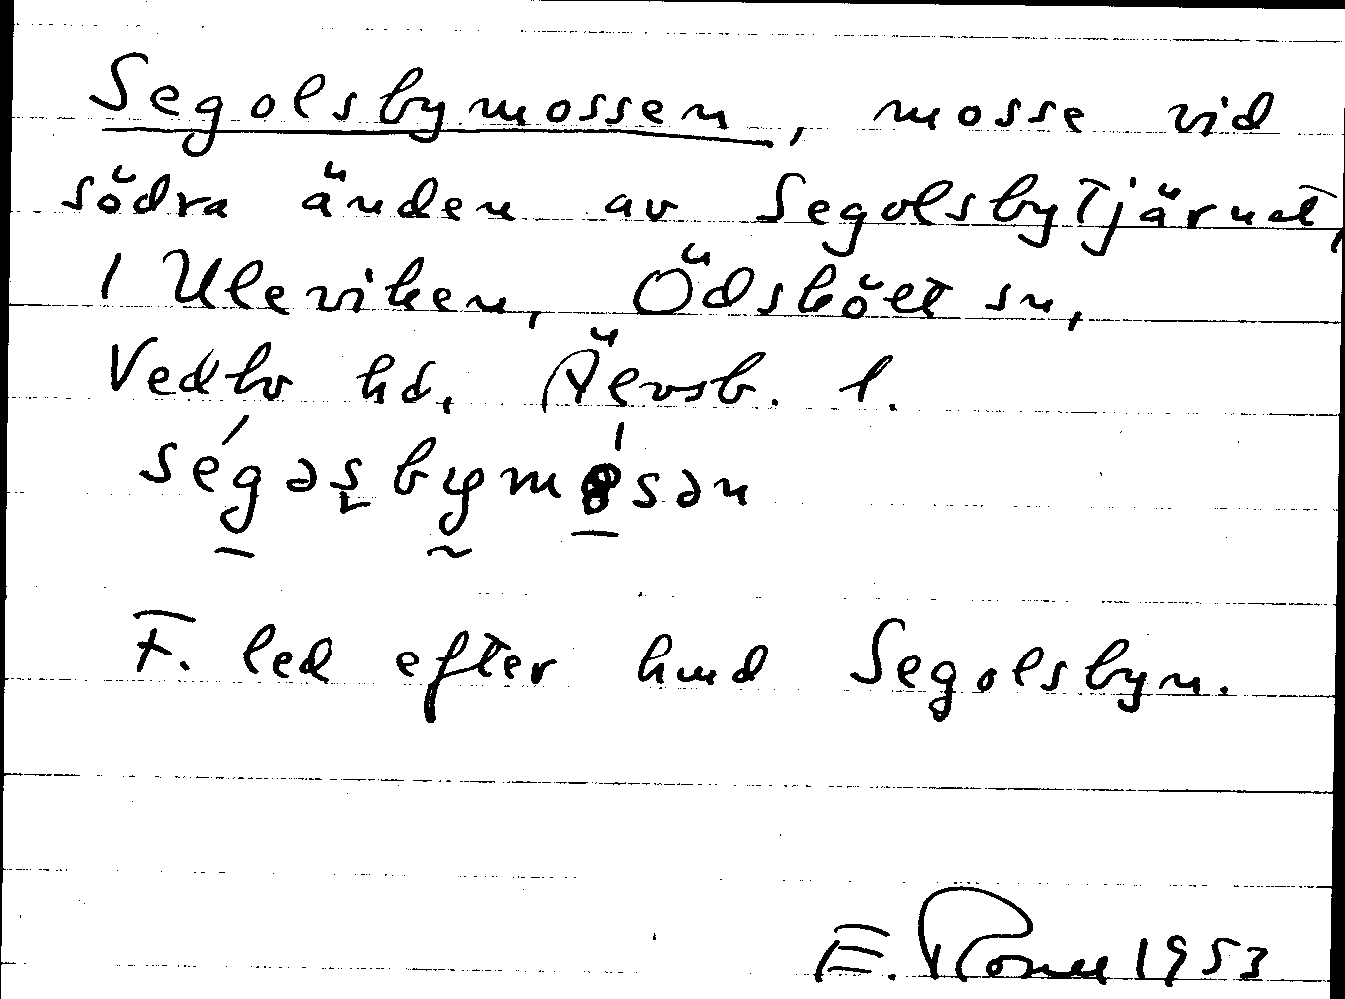 Segolsbymossen, mosse vid
södra änden av Segolsbytjärnet,
1 Uleviken, Ödskölt sn,
Vedbo hd, Älvsb. l.
F. led efter hmd Segolsbyn.
E. 1953